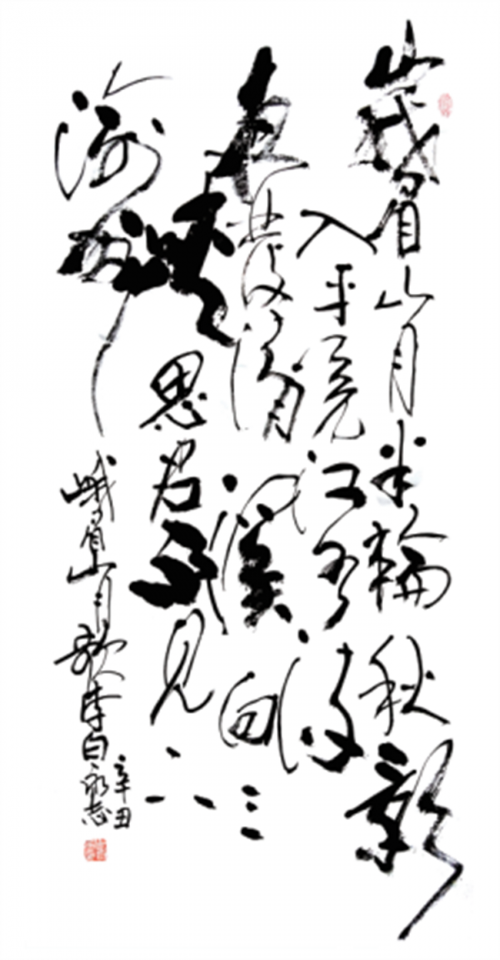 峩眉山月半輪秋影
入平羌江水流
夜發清溪向三
峽思君不見下
渝州
峨眉山月歌李白
辛丑
永志